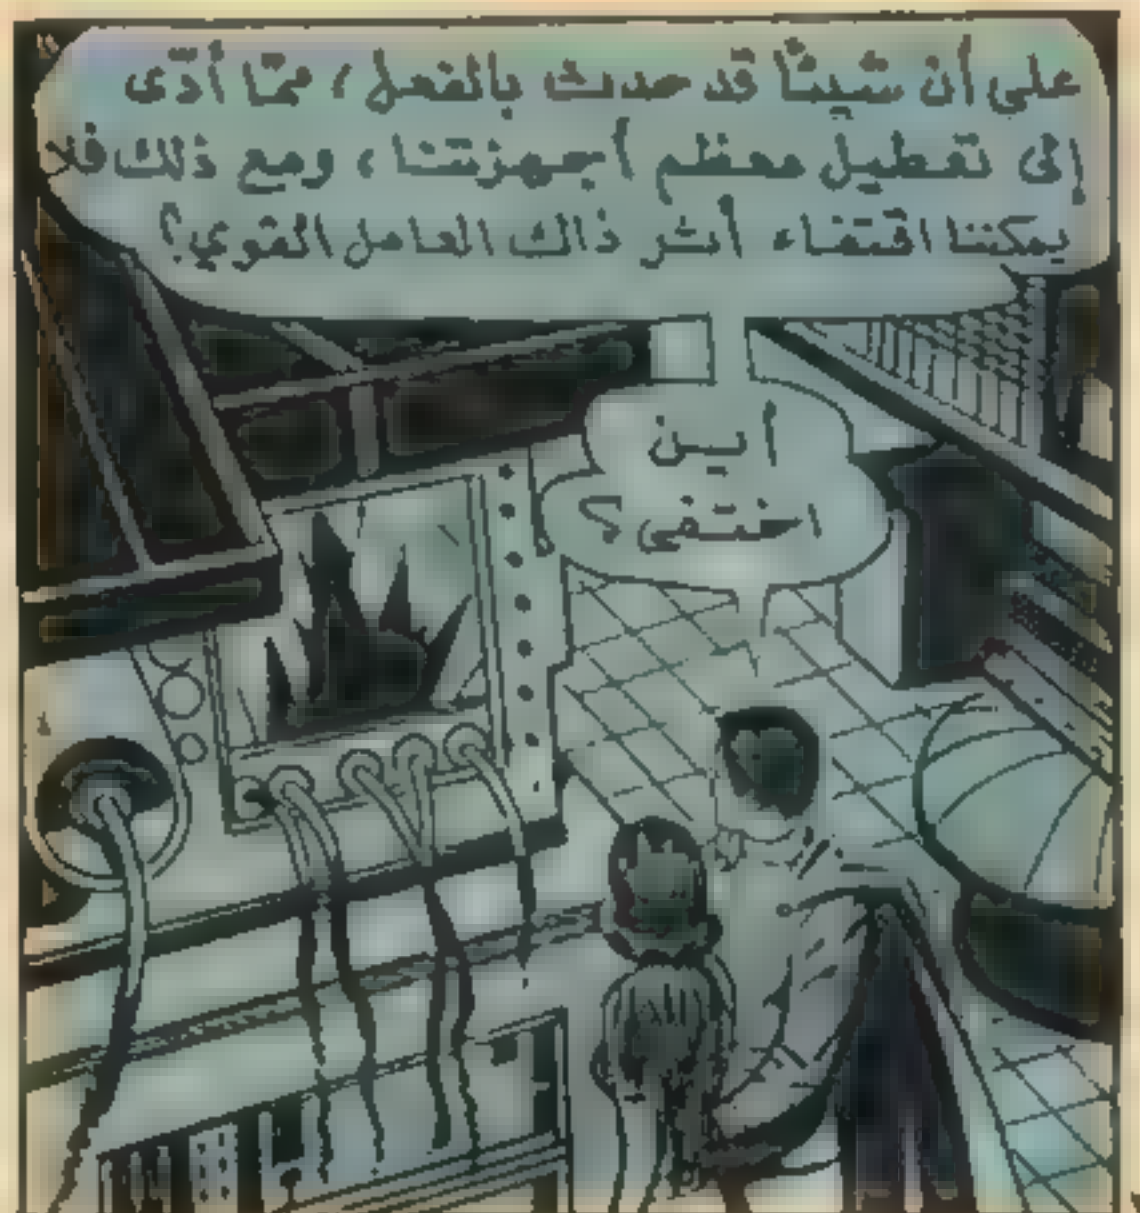 على أن شيئاً قد حدث بالفعل، ممّا أدّى
إلى تعطيل معظم أجهزتنا، ومع ذلك فلا
يمكننا اقتفاء أثر ذاك العامل القوي؟
أين
اختفى؟